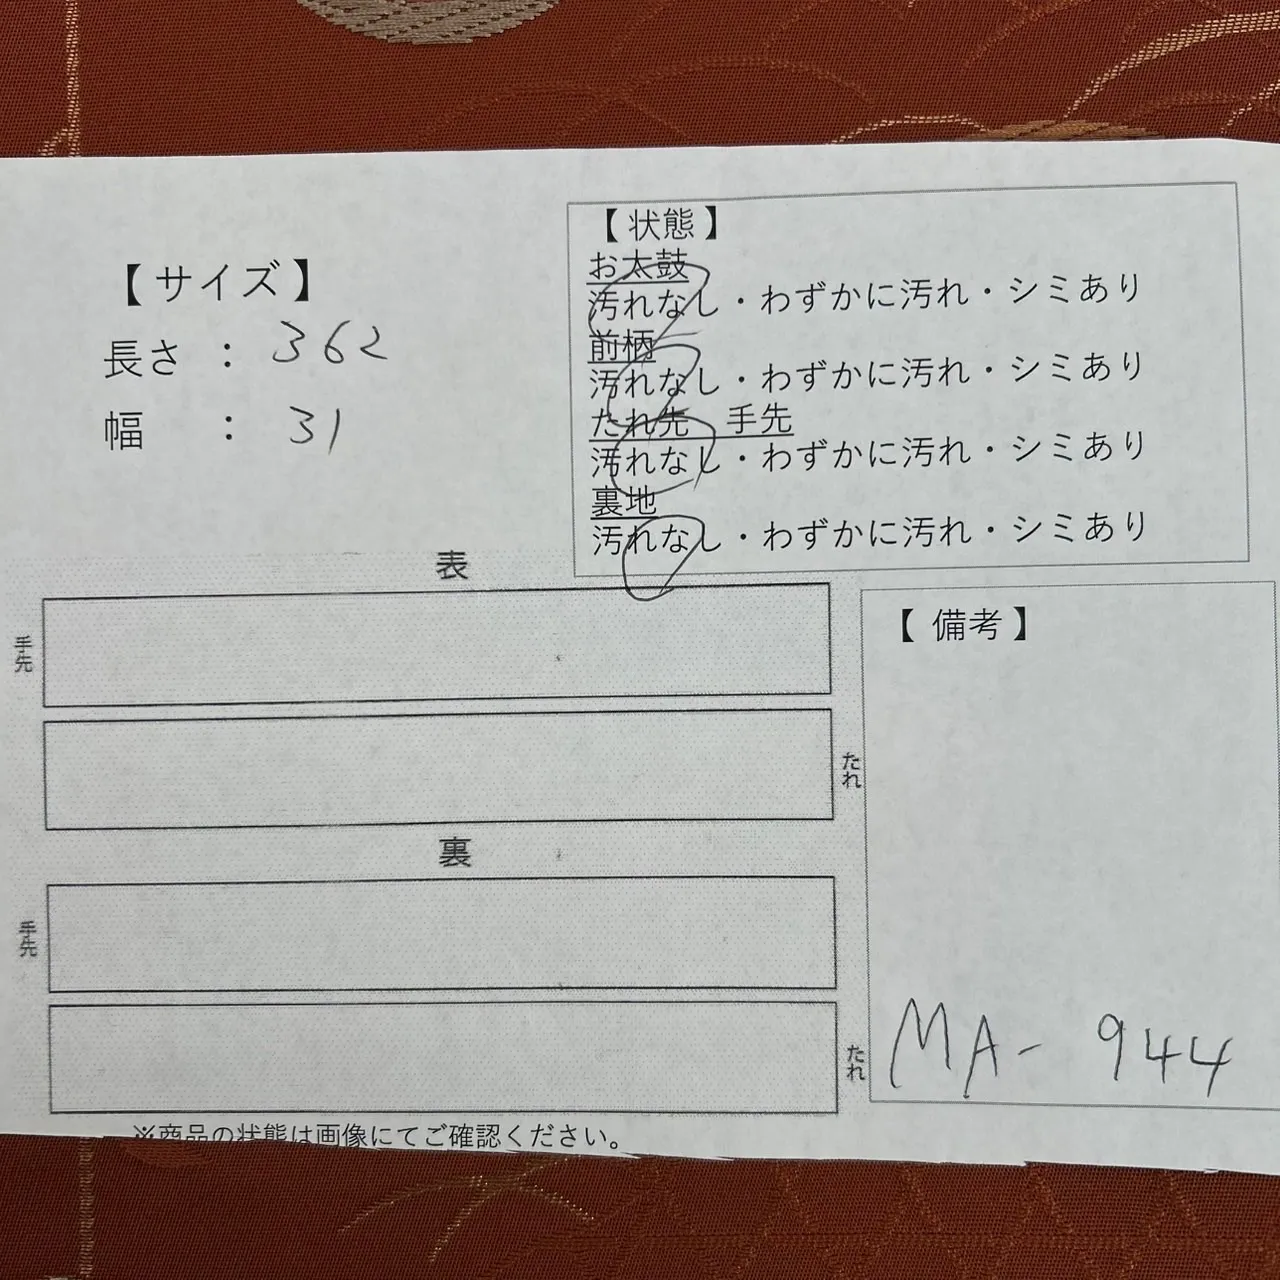 【サイズ】
長さ : 362
幅 : 31
【状態】
お太鼓
汚れなし・わずかに汚れ・シミあり
前柄
汚れなし・わずかに汚れ・シミあり
たれ先 手先
汚れなし・わずかに汚れ・シミあり
裏地
汚れなし・わずかに汚れ・シミあり
表
手先
たれ
裏
手先
たれ
【備考】
MA- 944
※商品の状態は画像にてご確認ください。